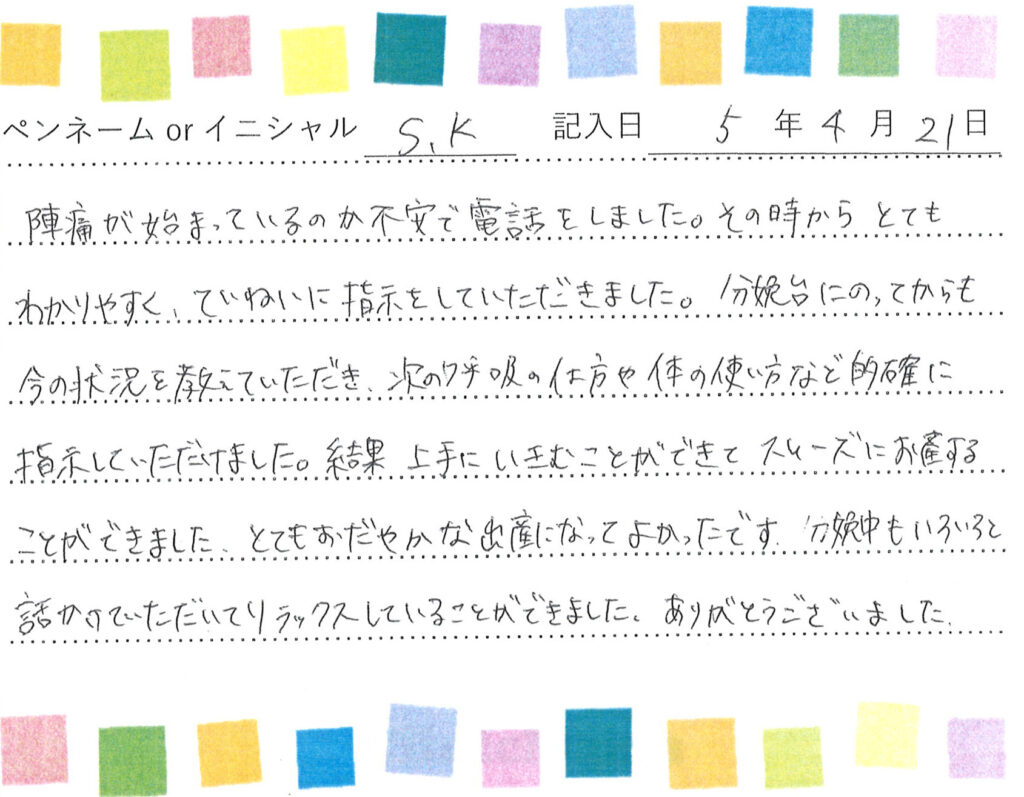 ペンネーム or イニシャル S.K 記入日 5 年 4 月 21 日
陣痛が始まっているのか不安で電話をしました。その時から とても
わかりやすく、ていねいに指示をしていただきました。分娩台にのってからも
今の状況を教えていただき、次の呼吸の仕方や体の使い方など的確に
指示していただけました。結果 上手に いきむことができて スムーズにお産する
ことができました、とてもおだやかな出産になってよかったです、分娩中もいろいろと
話かけていただいてリラックスしていることができました。ありがとうございました、